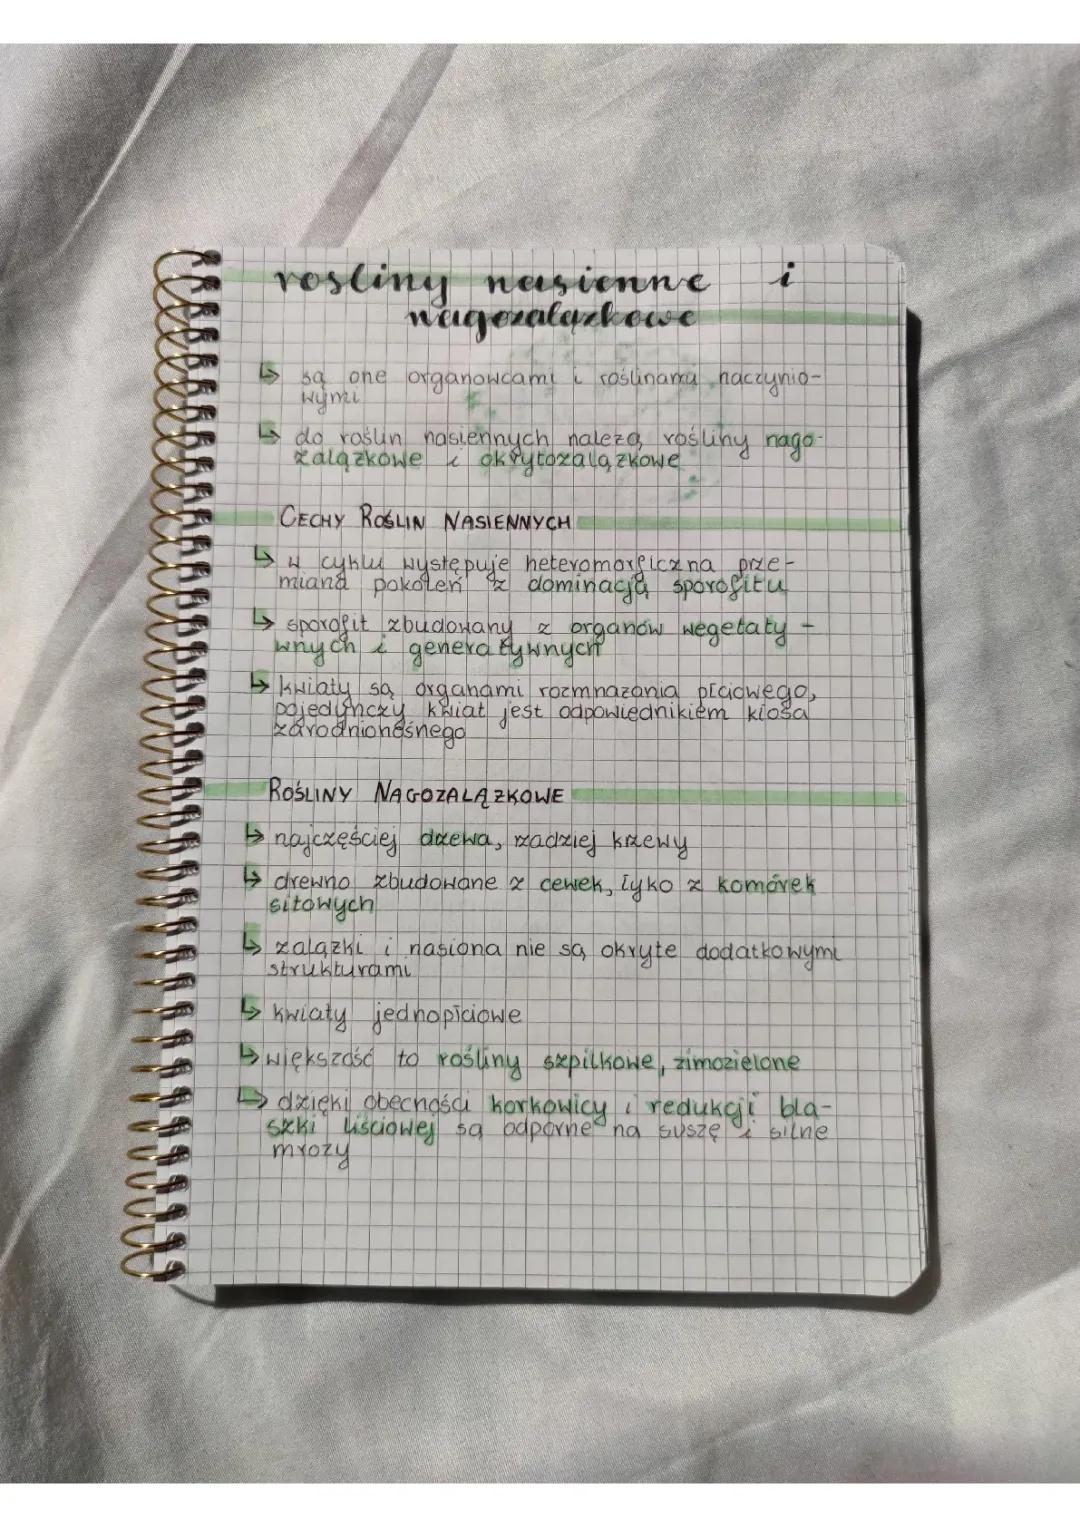 rośliny nasienne i
nagozalążkowe
↳ są one organowcami i roślinami naczynio-
wymi
↳ do roślin nasiennych należą rośliny nago-
zalążkowe i okrytozalążkowe
CECHY ROŚLIN NASIENNYCH
↳ w cyklu występuje heteromorficzna prze-
miana pokoleń z dominacją sporofitu
↳ sporofit zbudowany z organów wegetaty-
wnych i generatywnych
↳ kwiaty są organami rozmnażania płciowego,
pojedynczy kwiat jest odpowiednikiem kłosa
zarodnionośnego
ROŚLINY NAGOZALĄŻKOWE
↳ najczęściej drzewa, rzadziej krzewy
↳ drewno zbudowane z cewek, łyko z komórek
sitowych
↳ zalążki i nasiona nie są okryte dodatkowymi
strukturami
↳ kwiaty jednopłciowe
↳ większość to rośliny szpilkowe, zimozielone
↳ dzięki obecności korkowicy i redukcji bla-
szki liściowej są odporne na suszę i silne
mrozy